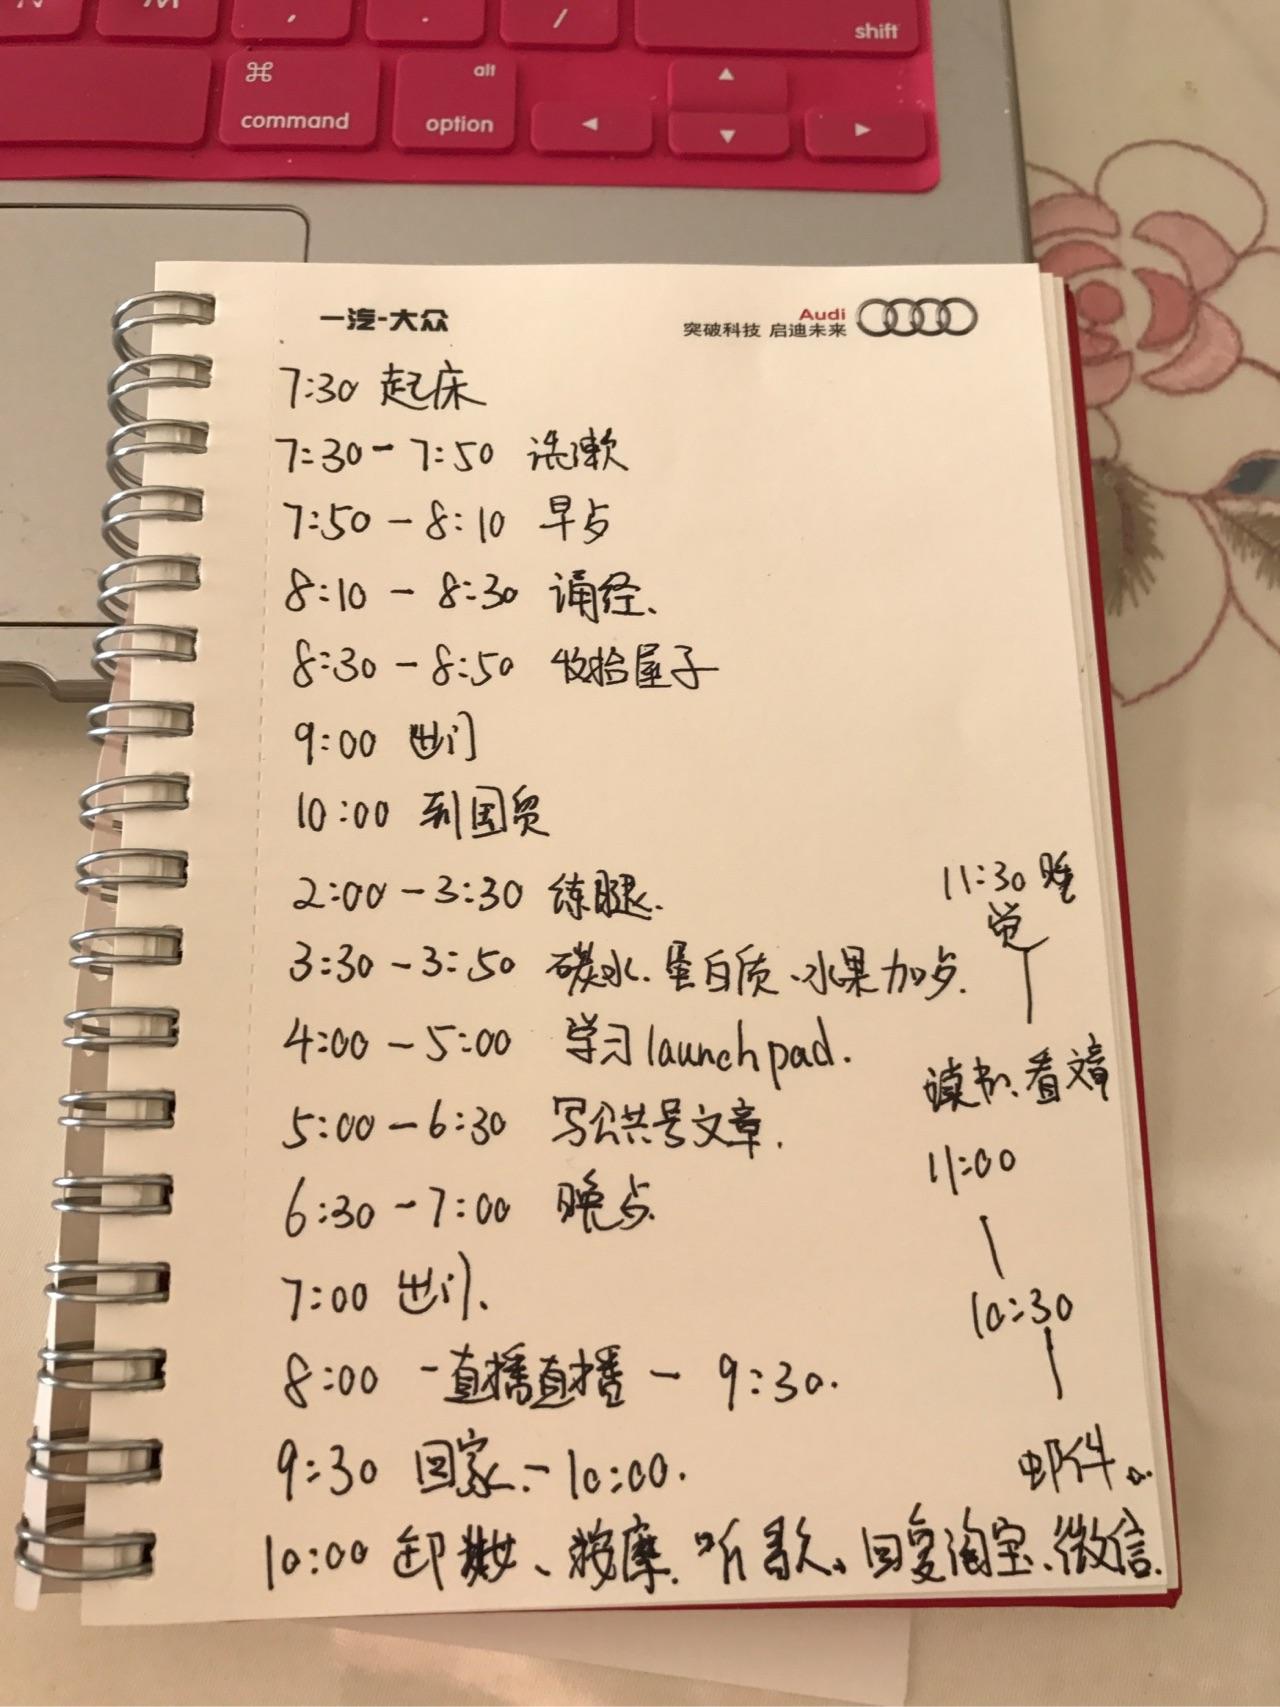 shift
⌘
alt
command
option
一汽-大众
Audi
突破科技 启迪未来
7:30 起床
7:30－7:50 洗漱
7:50－8:10 早点
8:10－8:30 诵经、
8:30－8:50 收拾屋子
9:00 出门
10:00 到国贸
2:00－3:30 练腿.
3:30－3:50 碳水、蛋白质、水果加点.
4:00－5:00 学习launchpad.
5:00－6:30 写公共号文章.
6:30－7:00 晚点.
7:00 出门.
8:00－直播直播－9:30.
9:30 回家.－10:00.
10:00 卸妆、按摩.听歌、回复淘宝、微信.
邮件。
10:30
11:00
读书、看文章
11:30 睡
觉